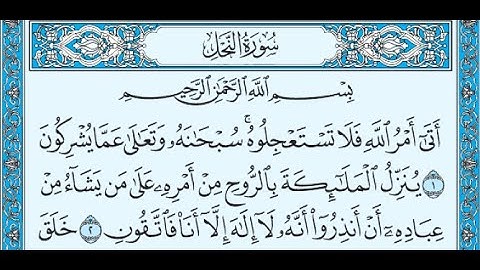 سُورَةُ النَّحْلِ
بِسْمِ اللَّهِ الرَّحْمَٰنِ الرَّحِيمِ
أَتَىٰٓ أَمْرُ اللَّهِ فَلَا تَسْتَعْجِلُوهُۚ سُبْحَٰنَهُۥ وَتَعَٰلَىٰ عَمَّا يُشْرِكُونَ
١ يُنَزِّلُ الْمَلَٰٓئِكَةَ بِالرُّوحِ مِنْ أَمْرِهِۦ عَلَىٰ مَن يَشَآءُ مِنْ
عِبَادِهِۦٓ أَنْ أَنذِرُوٓا۟ أَنَّهُۥ لَآ إِلَٰهَ إِلَّآ أَنَا۠ فَاتَّقُونِ ٢ خَلَقَ